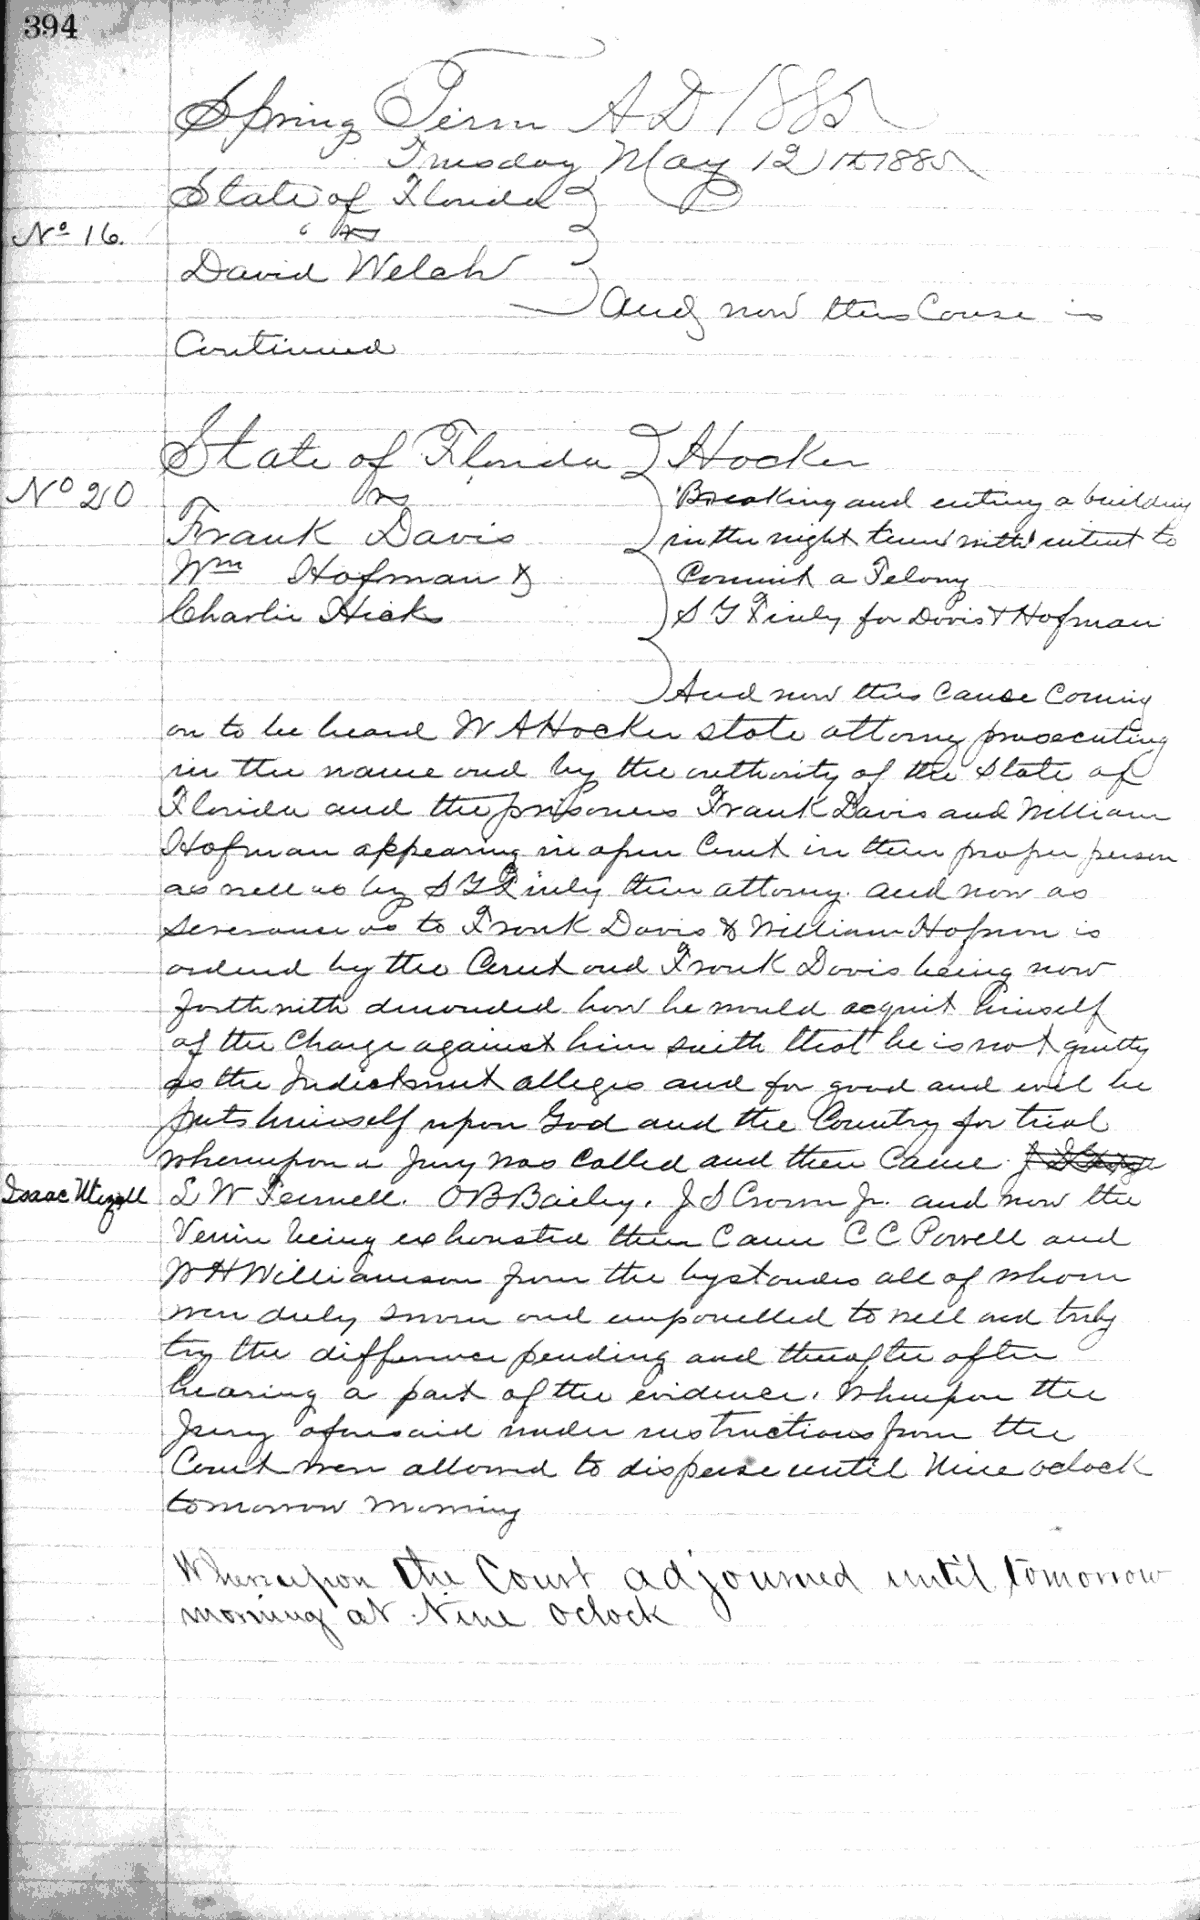 394
Spring Term A D 1885
Tuesday May 12th 1885
State of Florida
No 16. vs
David Welch
And now this Cause is
Continued
State of Florida Hocker
No 20 vs Breaking and entering a building
Frank Davis in the night time with intent to
Wm Hofman & Commit a Felony
Charlie Hicks S Y Finly for Davis & Hofman
And now this Cause Coming
on to be heard W A Hocker state attorny prosecuting
in the name and by the authority of the State of
Florida and the prisoners Frank Davis and William
Hofman appearing in open Court in their proper person
as well as by S Y Finly their attorny. and now as
severance as to Frank Davis & William Hofman is
ordered by the Court and Frank Davis being now
forthwith demanded how he would acquit himself
of the Charge against him saith that he is not guilty
as the Indictment alleges and for good and evil he
puts himself upon God and the Country for trial
whereupon a Jury was Called and then Came
Isaac L W Fennell. O B Bailey. J S Crown Jr. and now the
Venire being exhausted then Came C C Powell and
W H Williamson from the bystanders all of whom
were duly sworn and empanelled to well and truly
try the difference pending and thereafter after
hearing a part of the evidence. Whereupon the
Jury aforesaid under instructions from the
Court were allowed to disperse until Nine oclock
tomorrow morning
Whereupon the Court adjourned until tomorrow
morning at Nine oclock